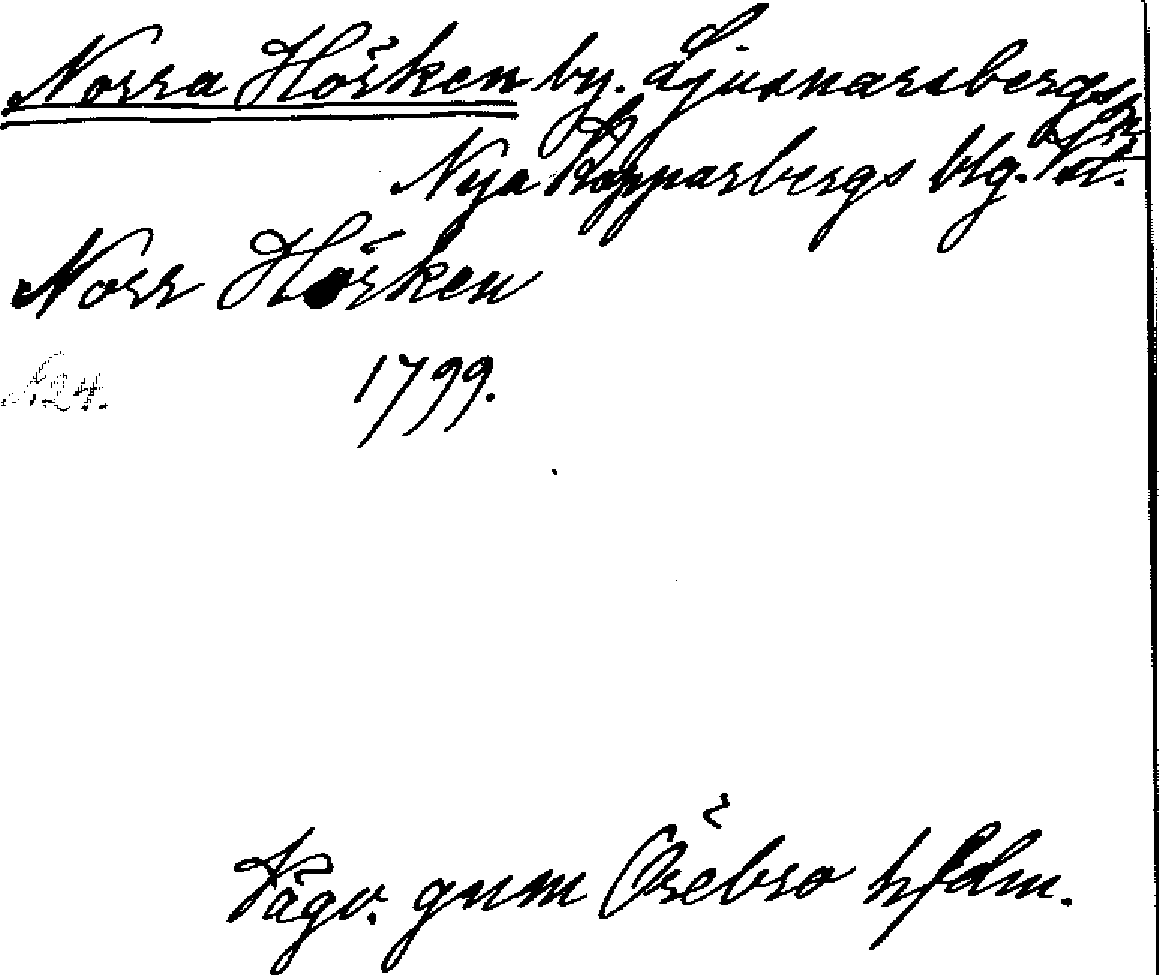 Norra Hörken by. Ljusnarsbergs
Nya Kopparbergs blg.
Norr Hörken
N24. 1799.
Vägv. gnm Örebro hfdm.